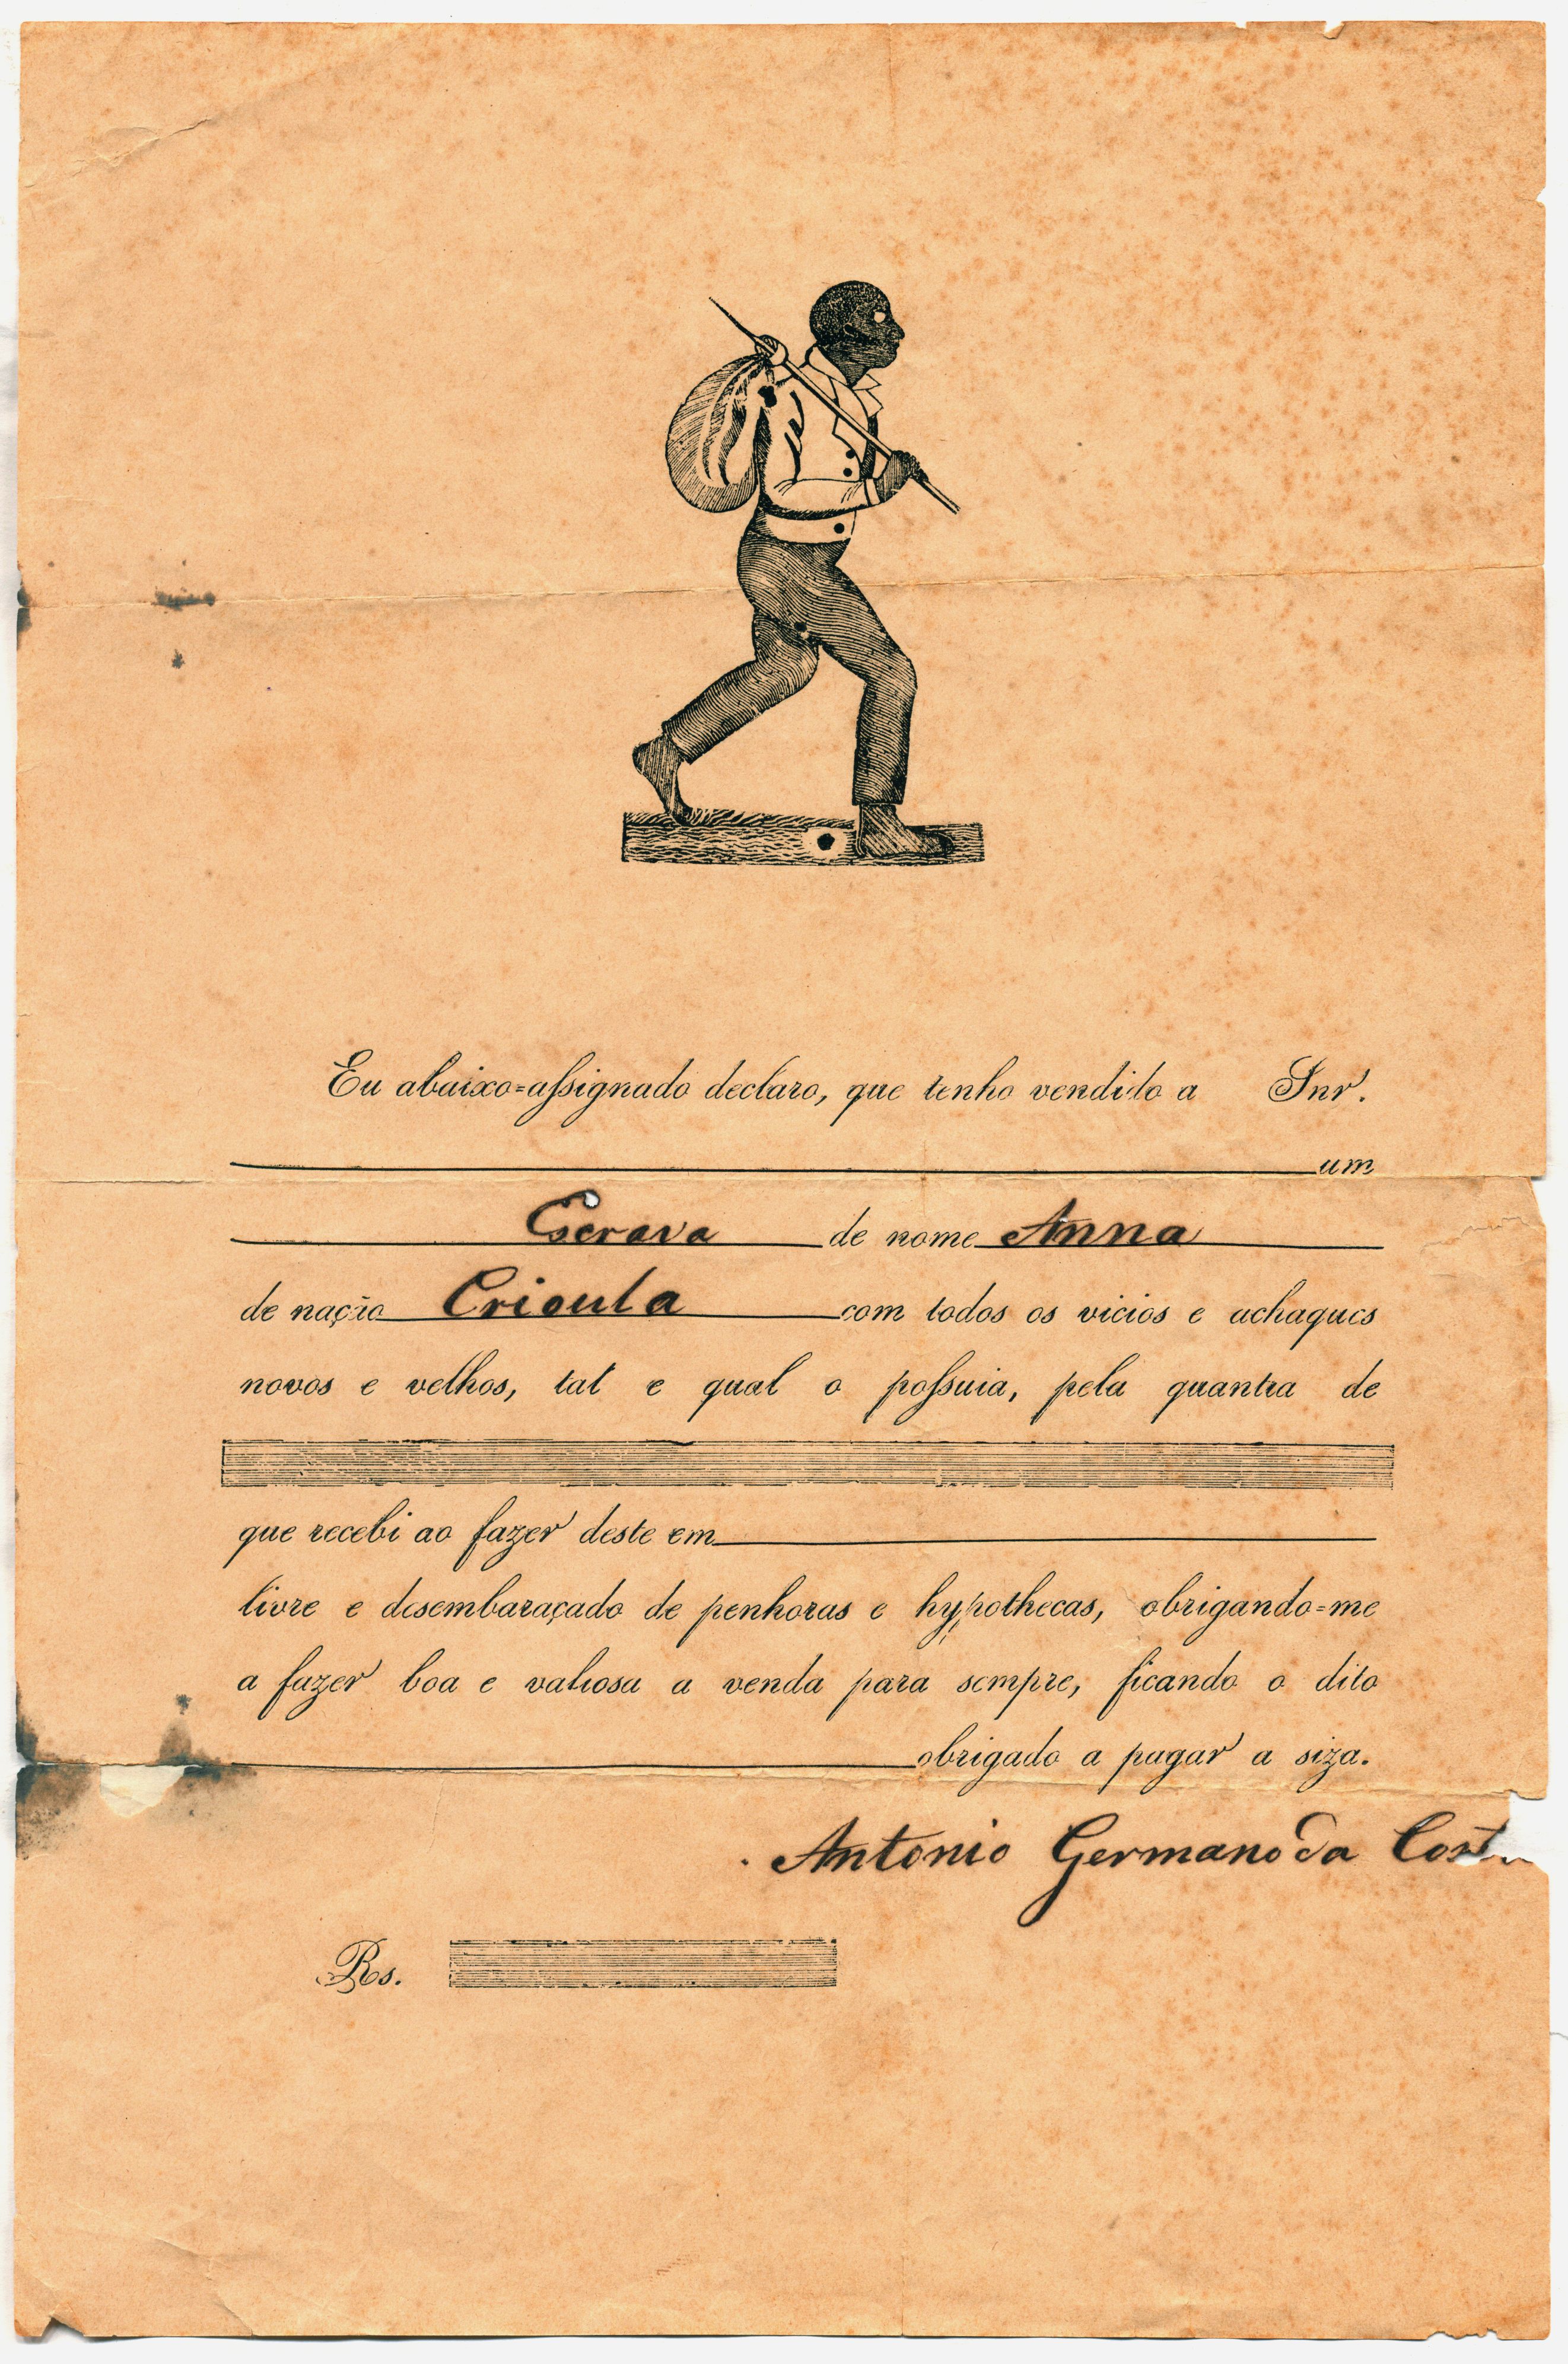 Eu abaixo=assignado declaro, que tenho vendido a Snr.
um
Escrava de nome Anna
de nação Crioula com todos os vicios e achaques
novos e velhos, tal e qual o possuia, pela quantia de
que recebi ao fazer deste em
livre e desembaraçado de penhoras e hypothecas, obrigando=me
a fazer boa e valiosa a venda para sempre, ficando o dito
obrigado a pagar a siza.
Antonio Germano da Costa
Rs.